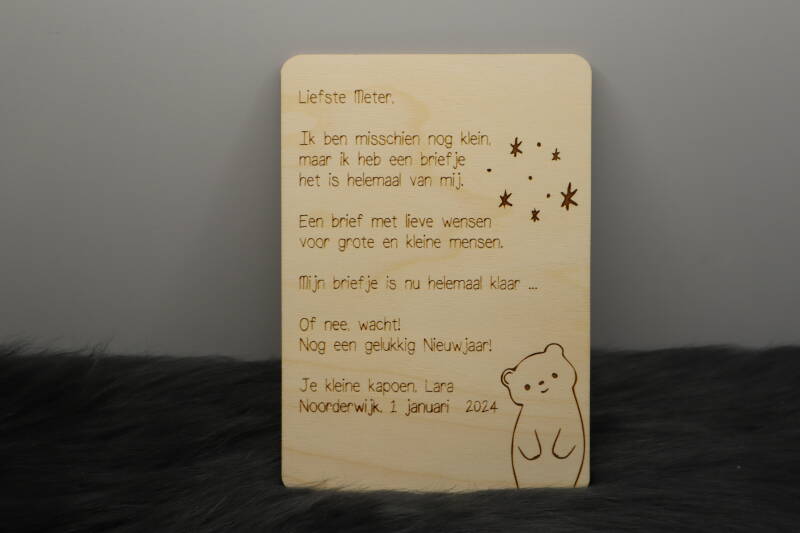 Liefste Meter,
Ik ben misschien nog klein,
maar ik heb een briefje
het is helemaal van mij.
Een brief met lieve wensen
voor grote en kleine mensen.
Mijn briefje is nu helemaal klaar ...
Of nee, wacht!
Nog een gelukkig Nieuwjaar!
Je kleine kapoen, Lara
Noorderwijk, 1 januari 2024